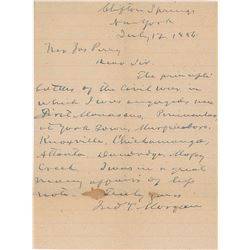 Clifton Springs
New York
July 12 1886
Dear Sir.
The principle
battles of the Civil War in
which I was engaged were
First Manassas, Peninsular
at York Town, Murfreesboro,
Knoxville, Chickamauga,
Atlanta Dandridge, Mossy
Creek I was in a great
many affairs of less
note. Truly yours
Jno T. Morgan